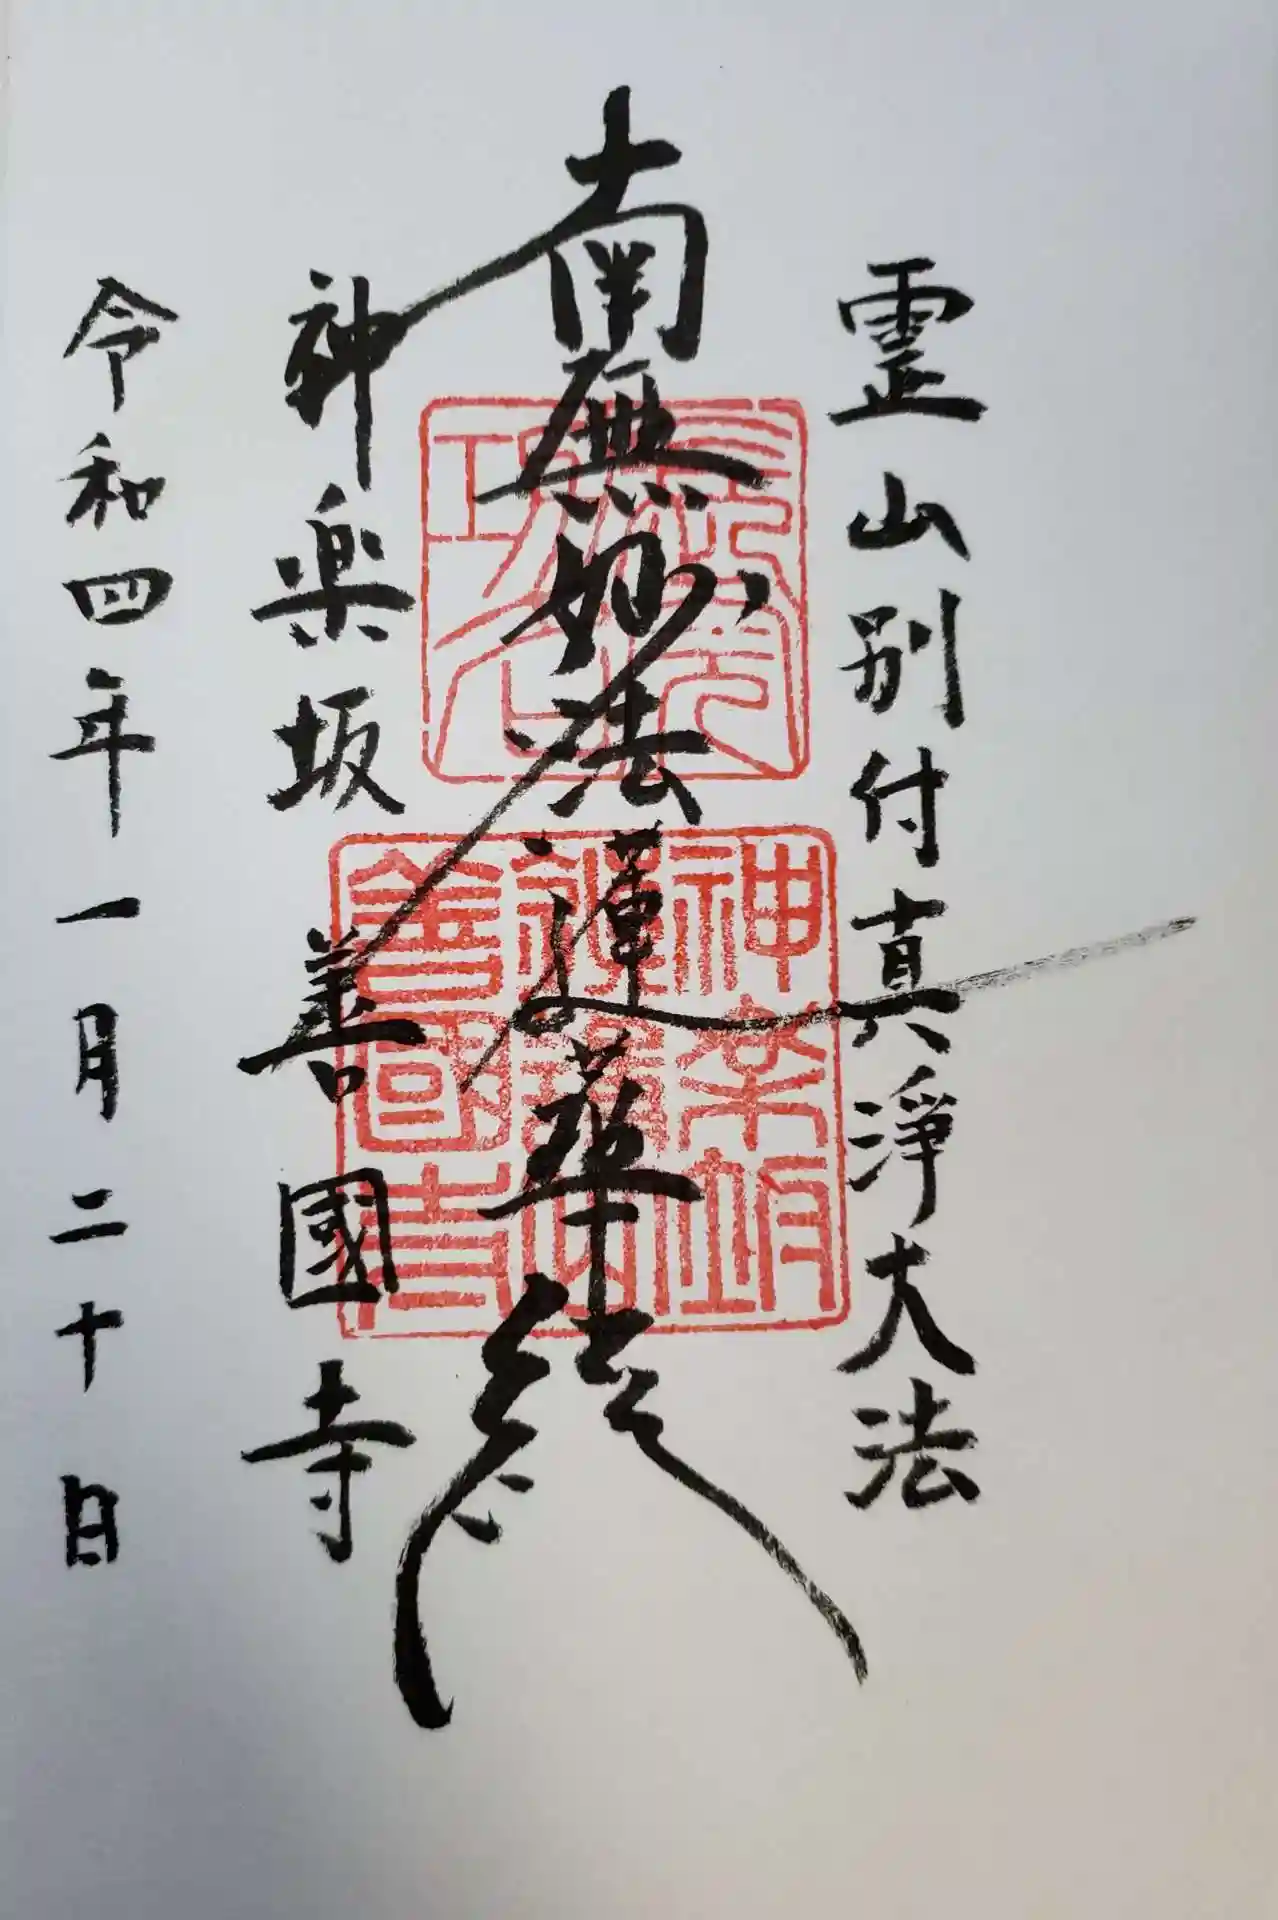 霊山別付真淨大法
南無妙法蓮華経
神楽坂善國寺
令和四年一月二十日
神楽坂
善國寺